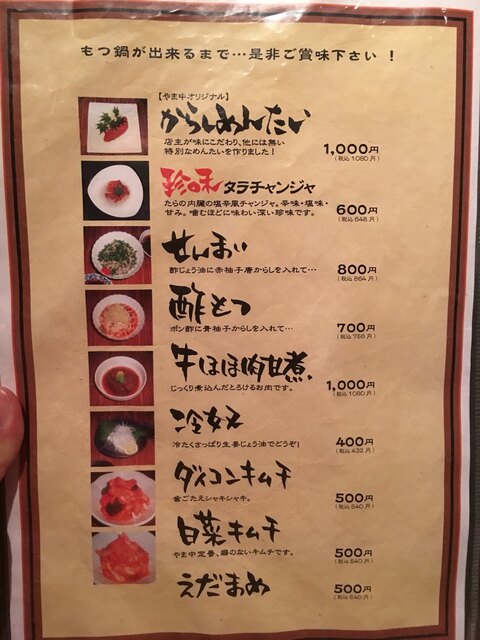 もつ鍋が出来るまで…是非ご賞味下さい！
【やま中オリジナル】
からしめんたい
店主が味にこだわり、他には無い
特別なめんたいを作りました！
1,000円
（税込 1080 円）
珍味 タラチャンジャ
たらの内臓の塩辛風チャンジャ。辛味・塩味・
甘み。噛むほどに味わい深い珍味です。
600円
（税込 648 円）
せんまい
酢じょうゆに赤柚子唐からしを入れて…
800円
（税込 864 円）
酢もつ
ポン酢に青柚子からしを入れて…
700円
（税込 756 円）
牛ほほ肉甘煮
じっくり煮込んだとろけるお肉です。
1,000円
（税込 1080 円）
冷奴
冷たくさっぱり生姜じょうゆでどうぞ！
400円
（税込 432 円）
ダイコンキムチ
歯ごたえシャキシャキ。
500円
（税込 540 円）
白菜キムチ
やま中定番、癖のないキムチです。
500円
（税込 540 円）
えだまめ
500円
（税込 540 円）